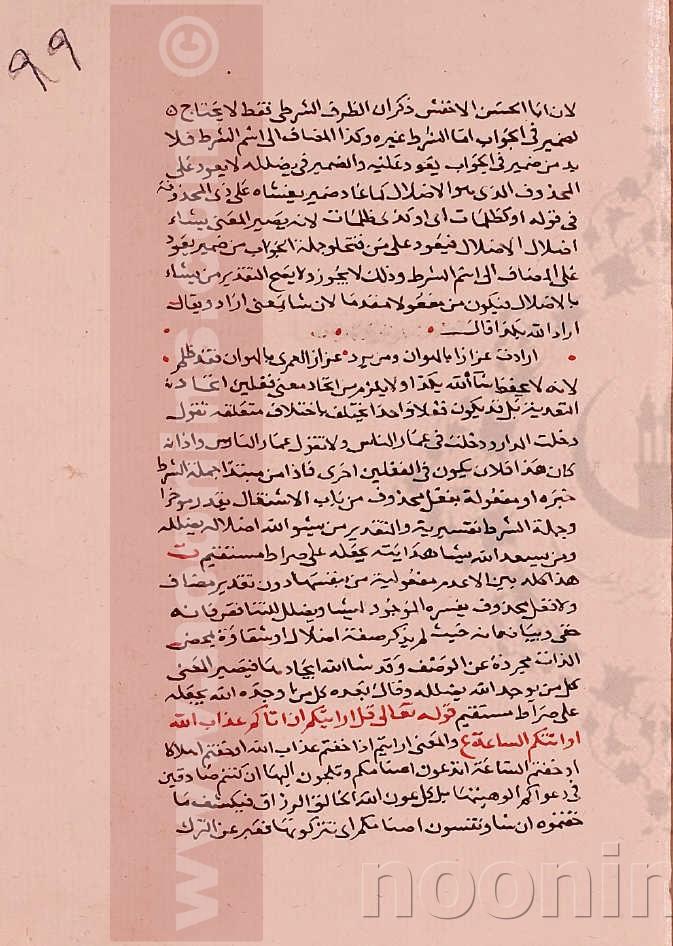 ٩٩
لان ابا الحسن الاخفش ذكر ان الظرف الشرطي فقط لا يحتاج ه
لضمير في الجواب اما الشرط غيره وكذا المضاف الى اسم الشرط فلا
بد من ضمير في الجواب يعود عليه والضمير في يضلله لا يعود على
المحذوف الذي هو الاضلال كما عاد ضمير يغشاه على ذي المحذوفة
في قوله او كظلمات اي او كذي ظلمات لانه يصير المعنى يشاء
اضلال الاضلال فيعود على من فتخلو جملة الجواب من ضمير يعود
على المضاف الى اسم الشرط وذلك لا يجوز ولا يصح التقدير من يشاء
بالاضلال فيكون من مفعولا مقدما لان شاء بمعنى اراد ويقال
اراد الله بكذا قال
ارادت عرارا بالهوان ومن يرد عرار العمري بالهوان فقد ظلم
لانه لا يحفظ شاء الله بكذا ولا يلزم من اتحاد معنى فعلين اتحاد
التعدية بل قد يكون فعلا واحدا يختلف باختلاف متعلقه تقول
دخلت الدار ودخلت في غمار الناس ولا تقول غمار الناس واذا
كان هذا فلان يكون في الفعلين احرى فاذا من مبتدا جملة الشرط
خبره او مفعولة بفعل محذوف من باب الاشتغال يقدر موخرا
وجملة الشرط تفسيرية والتقدير من يشقو الله اضلاله يضلله
ومن يسعد الله يشا هدايته يجعله على صراط مستقيم ت
هذا كله بين الا عدم مفعولية من بنفسها دون تقدير مضاف
ولا فعل محذوف يفسره الموجود يشا ويضلل للتنافر فانه
خفي وبيانه انه حيث لم يذكر صفة اضلال او شقاوة بمحض
الذات مجردة عن الوصف وقد شا الله ايجادها فيصير المعنى
كل من يوجد الله يضلله وقال بعده كل من وجده الله يجعله
على صراط مستقيم قوله تعالى قل ارايتكم ان اتاكم عذاب الله
او اتتكم الساعة ع والمعنى ارايتم اذا خفتم عذاب الله او خفتم اهلاكا
او خفتم الساعة اتدعون اصنامكم وتلجون اليها ان كنتم صادقين
في دعواكم الوهيتها بل تدعون الله الخالق الرزاق فيكشف ما
خفتموه ان شا وتنسون اصنامكم اي تتركونها فعبر عن الترك
www.noonindex.com
©
noonin